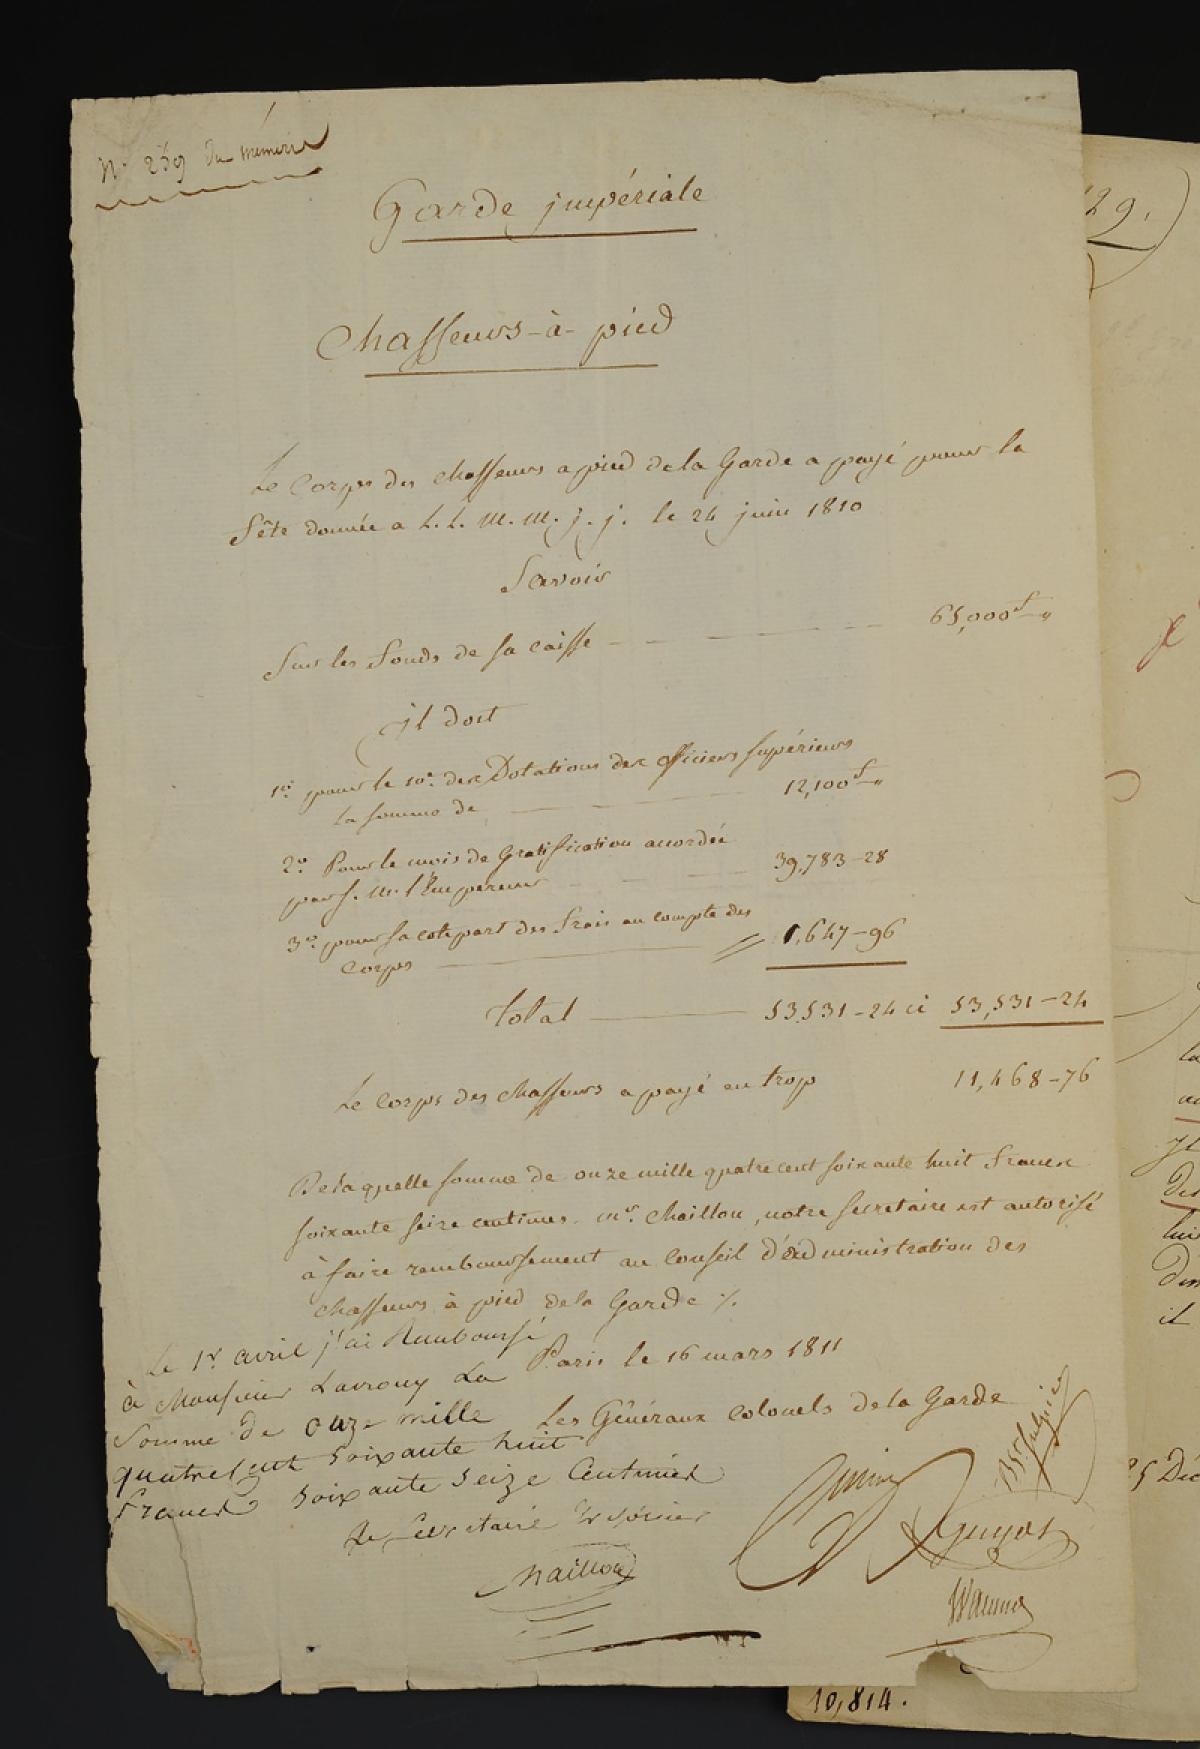 N° 259 du mémoire
Garde impériale
Chasseurs-à-pied
Le Corps des chasseurs a pied de la Garde a payé pour la
fête donnée a L. L. M. M. j. j. le 24 juin 1810
Savoir
Sur les fonds de sa caisse 65,000f "
il doit
1°. pour le 10e. des Dotations des officiers supérieurs
la somme de 12,100f "
2°. Pour le mois de Gratification accordée
par S. M. l'Empereur 39,783-28
3°. pour sa cote part des frais au compte des
Corps 1,647-96
Total 53,531-24 ci 53,531-24
Le Corps des chasseurs a payé en trop 11,468-76
De laquelle somme de onze mille quatre cent soixante huit francs
soixante seize centimes. Mr. Maillon, notre secretaire est autorisé
à faire remboursement au Conseil d'administration des
chasseurs à pied de la Garde ./.
Paris le 16 mars 1811
Les Généraux Colonels de la Garde
Le 1r avril j'ai Remboursé
à Monsieur Lavrouy La
Somme de onze mille
quatre Cent soixante huit
francs soixante seize Centimes
Le Secrétaire Trésorier
Maillon
Guyot
129.
la
des
lui
il
25 Déc
10,814.